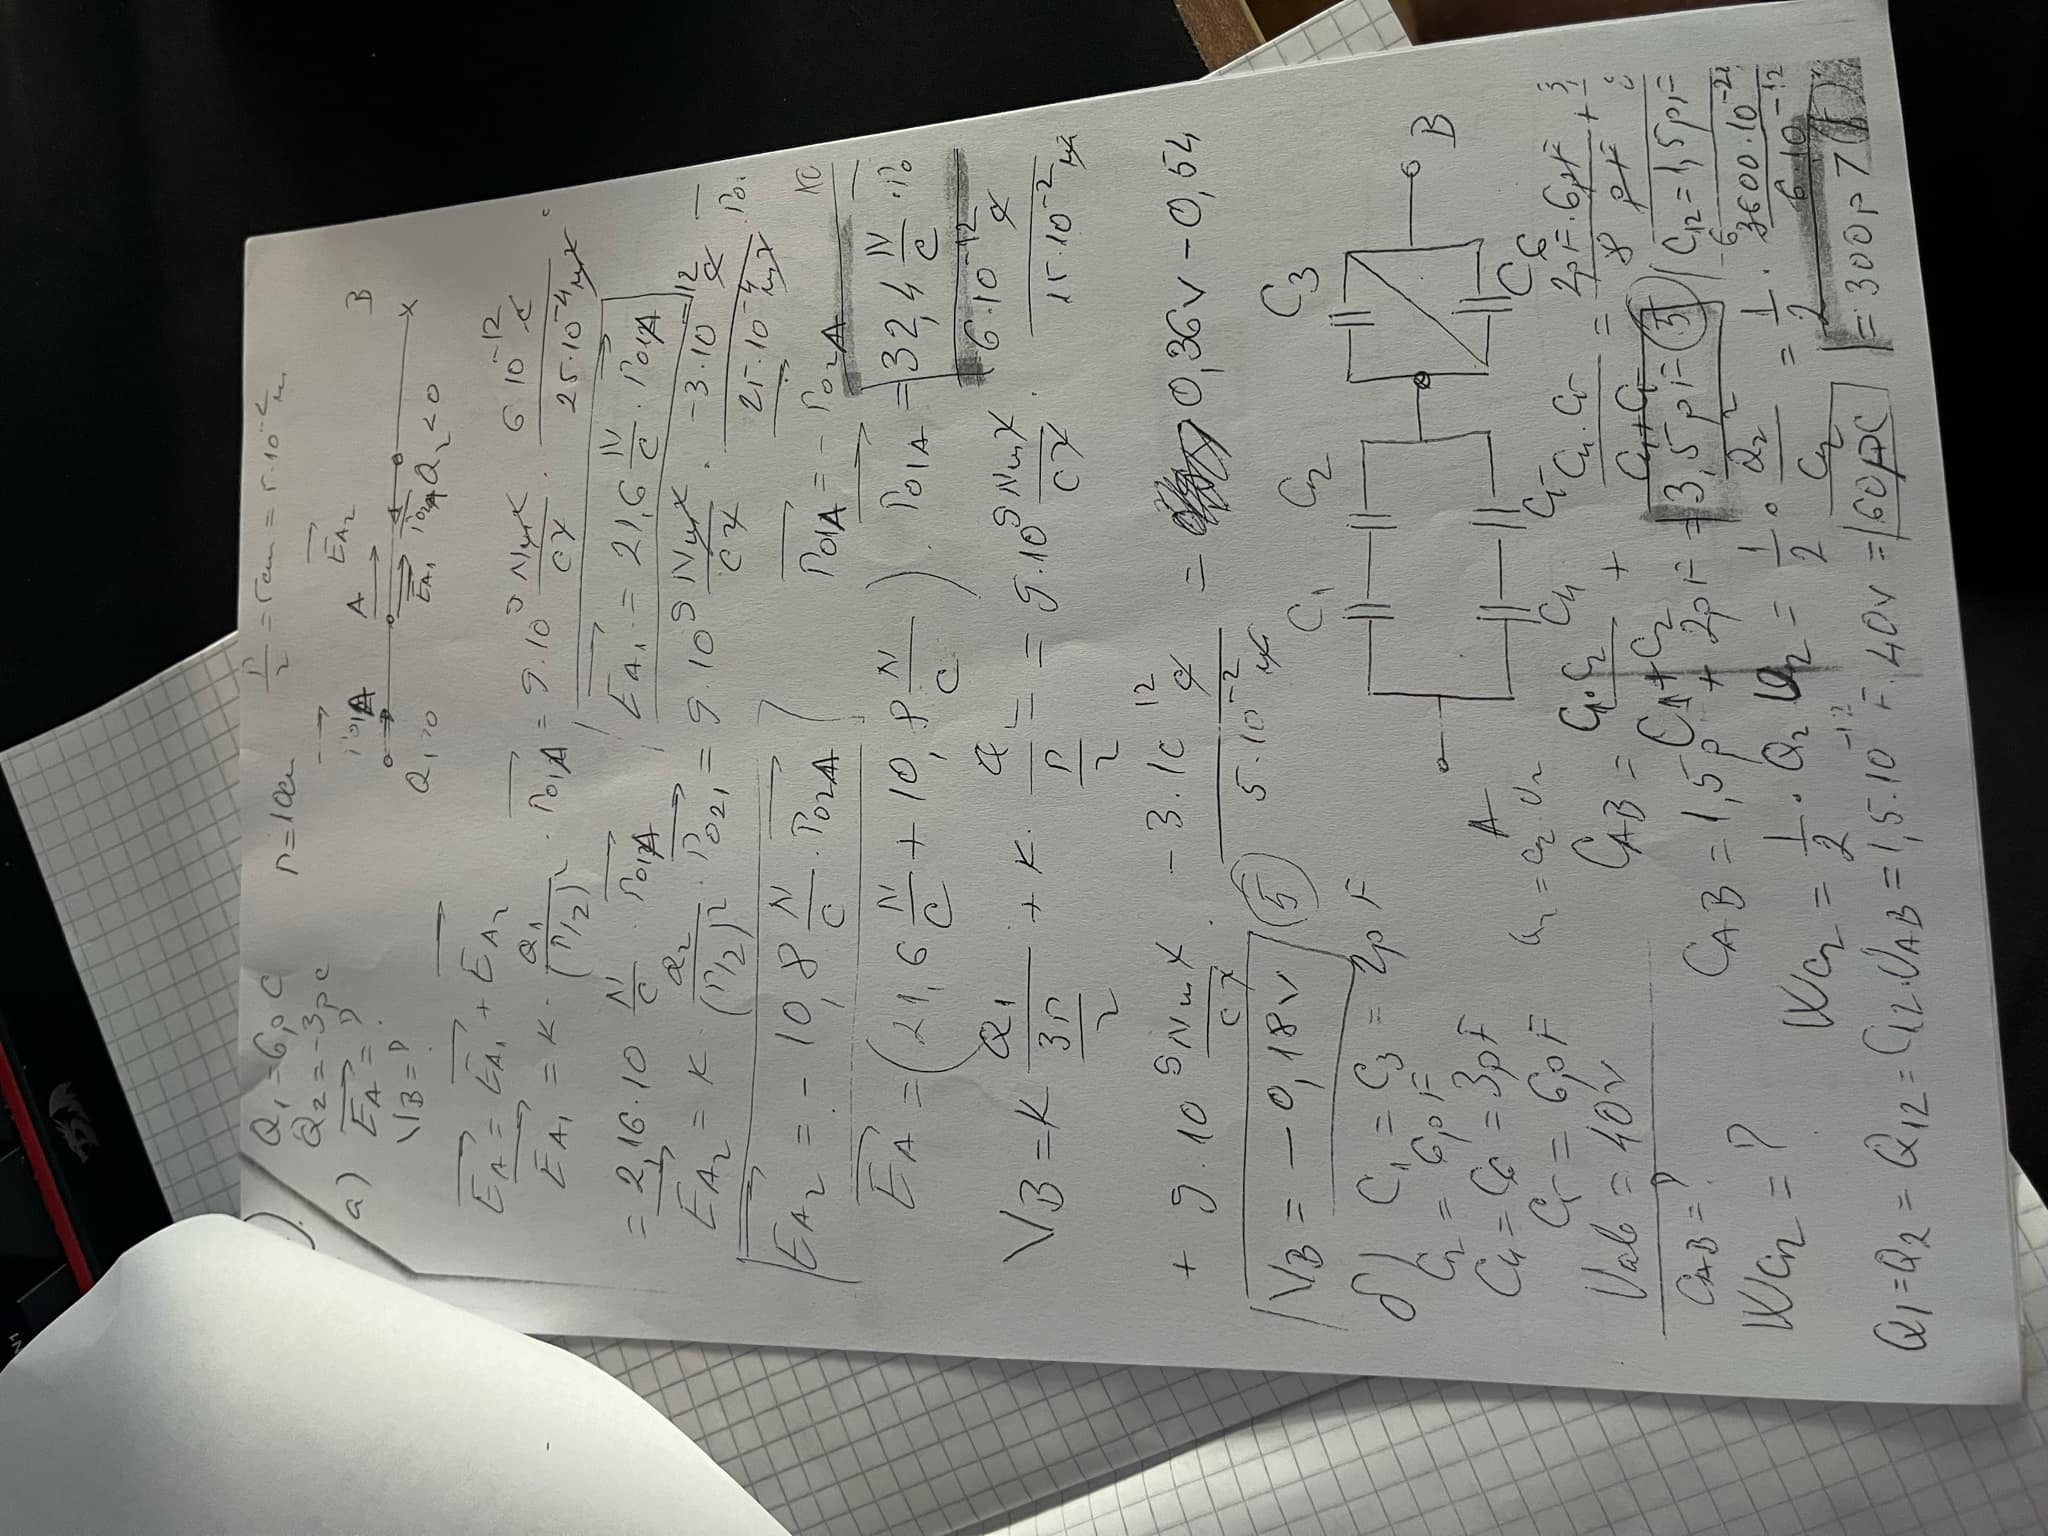 Q₁ = 6pC r = 10cm r/2 = 5cm = 5·10⁻² m
Q₂ = -3pC
a) E_A = ?
V_B = ?
r₀₁A A E_A₂ B
Q₁>0 E_A₁ r₀₂A Q₂<0
E_A = E_A₁ + E_A₂
E_A₁ = k · Q₁/(r/2)² · r₀₁A = 9·10⁹ Nm²/C² · 6·10⁻¹² C/25·10⁻⁴ m² ·
= 2,16·10 N/C · r₀₁A E_A₁ = 21,6 N/C · r₀₁A
E_A₂ = k · Q₂/(r/2)² · r₀₂₁ = 9·10⁹ Nm²/C² · -3·10⁻¹² C/25·10⁻⁴ m² · r₀
E_A₂ = - 10,8 N/C · r₀₂A r₀₁A = - r₀₂A
E_A = (21,6 N/C + 10,8 N/C) · r₀₁A = 32,4 N/C · r₀
V_B = k Q₁/(3r/2) + k · Q₂/(r/2) = 9·10⁹ Nm²/C² · 6·10⁻¹² C/15·10⁻² m
+ 9·10⁹ Nm²/C² · -3·10¹² C/5·10⁻² m = 0,36V - 0,54
V_B = -0,18V 5
C₁ C₂ C₃
б) C₁ = C₃ = 2pF
C₂ = 6pF
A B
C₄ = C₆ = 3pF
C₄ C₅ C₆
C₅ = 6pF Q₂ = C₂·U₂
Uab = 40V C_AB = C₁·C₂/(C₁+C₂) + C₄·C₅/(C₄+C₅) = 2pF·6pF/8pF + 3
C_AB = ? C_AB = 1,5p + 2pF = 3,5pF 5 C₁₂ = 1,5pF
W_C₂ = ? W_C₂ = 1/2 · Q₂ U₂ = 1/2 · Q₂²/C₂ = 1/2 · 3600·10⁻²⁴/6·10⁻¹²
Q₁ = Q₂ = Q₁₂ = C₁₂·U_AB = 1,5·10⁻¹² F·40V = 60pC = 300pJ